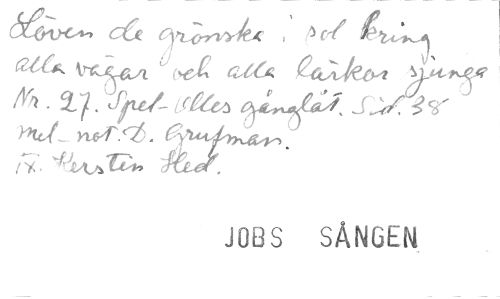 Löven de grönska i sol kring
alla vägar och alla lärkor sjunga
Nr. 27. Spel-Olles gånglåt. Sid. 38
mel-not. D. Grufman.
Tx. Kersten Hed.
JOBS SÅNGEN